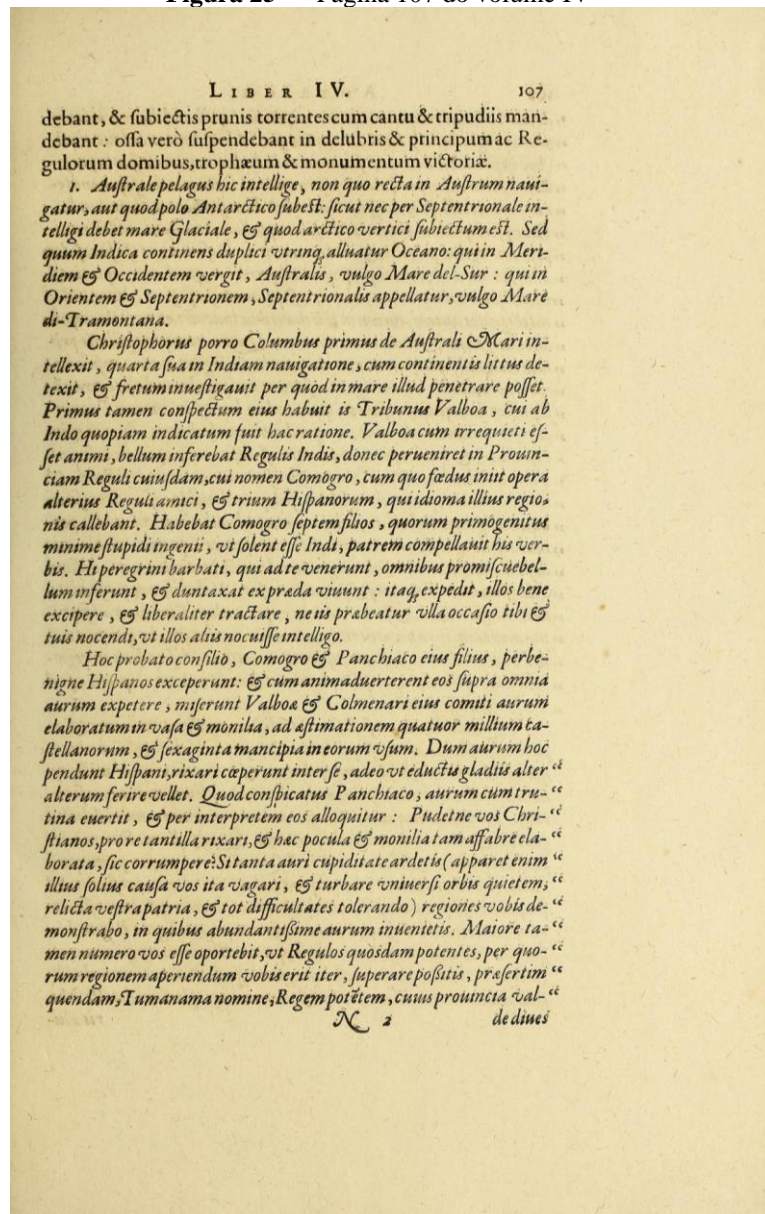 Figura 25 – Página 107 do volume IV
LIBER IV. 107
debant, & ſubiectis prunis torrentes cum cantu & tripudiis man-
debant: oſſa verò ſuſpendebant in delubris & principum ac Re-
gulorum domibus, trophæum & monumentum victoriæ.
1. Auſtrale pelagus hic intellige, non quo recta in Auſtrum naui-
gatur, aut quod polo Antarctico ſubeſt: ſicut nec per Septentrionale in-
telligi debet mare Glaciale, & quod arctico vertici ſubiectum eſt. Sed
quum Indica continens duplici vtrinq, alluatur Oceano: qui in Meri-
diem & Occidentem vergit, Auſtralis, vulgo Mare del-Sur: qui in
Orientem & Septentrionem, Septentrionalis appellatur, vulgo Mare
di-Tramontana.
Chriſtophorus porro Columbus primus de Auſtrali Mari in-
tellexit, quarta ſua in Indiam nauigatione, cum continentis littus de-
texit, & fretum inueſtigauit per quod in mare illud penetrare poſſet.
Primus tamen conſpectum eius habuit is Tribunus Valboa, cui ab
Indo quopiam indicatum fuit hac ratione. Valboa cum irrequieti eſ-
ſet animi, bellum inferebat Regulis Indis, donec perueniret in Prouin-
ciam Reguli cuiuſdam, cui nomen Comogro, cum quo fœdus iniit opera
alterius Reguli amici, & trium Hiſpanorum, qui idioma illius regio-
nis callebant. Habebat Comogro ſeptem filios, quorum primogenitus
minime ſtupidi ingenii, vt ſolent eſſe Indi, patrem compellauit his ver-
bis. Hi peregrini barbati, qui ad te venerunt, omnibus promiſcue bel-
lum inferunt, & duntaxat ex præda viuunt: itaq, expedit, illos bene
excipere, & liberaliter tractare, ne iis præbeatur vlla occaſio tibi &
tuis nocendi, vt illos aliis nocuiſſe intelligo.
Hoc probato conſilio, Comogro & Panchiaco eius filius, perbe-
nigne Hiſpanos exceperunt: & cum animaduerterent eos ſupra omnia
aurum expetere, miſerunt Valboæ & Colmenari eius comiti aurum
elaboratum in vaſa & monilia, ad æſtimationem quatuor millium ca-
ſtellanorum, & ſexaginta mancipia in eorum vſum. Dum aurum hoc
pendunt Hiſpani, rixari cœperunt inter ſe, adeo vt eductis gladiis alter “
alterum ferire vellet. Quod conſpicatus Panchiaco, aurum cum tru- “
tina euertit, & per interpretem eos alloquitur: Pudetne vos Chri- “
ſtianos, pro re tantilla rixari, & hæc pocula & monilia tam affabre ela- “
borata, ſic corrumpere? Si tanta auri cupiditate ardetis (apparet enim “
illius ſolius cauſa vos ita vagari, & turbare vniuerſi orbis quietem, “
relicta veſtra patria, & tot difficultates tolerando) regiones vobis de- “
monſtrabo, in quibus abundantiſſime aurum inuenietis. Maiore ta- “
men numero vos eſſe oportebit, vt Regulos quoſdam potentes, per quo- “
rum regionem aperiendum vobis erit iter, ſuperare poſſitis, præſertim “
quendam, Tumanama nomine, Regem potẽtem, cuius prouincia val- “
N 2 de diues